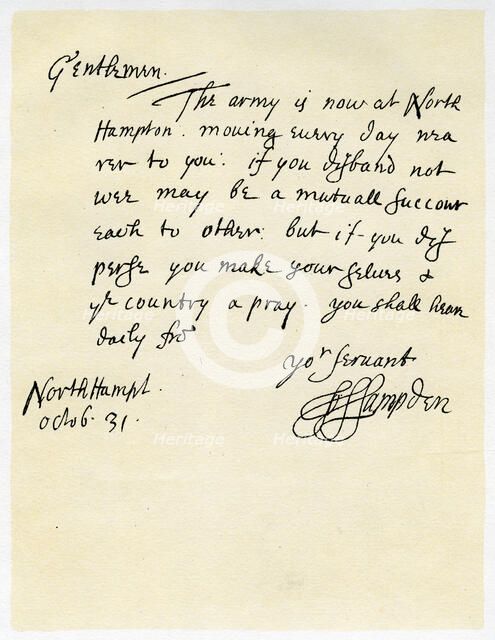 Gentlemen.
The army is now at North
Hampton. moving euery day nea
rer to you. if you disband not
wee may be a mutuall succour
each to other: but if you dis
perse you make your selues &
yr country a pray. you shall hear
daily fro
yor servant
Hampden
NorthHampt.
octob. 31.
Heritage
Heritage
Heritage
Heritage
Heritage
Heritage